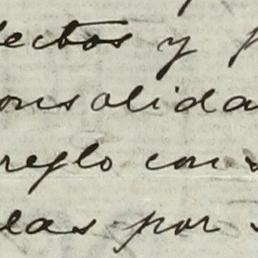 lectos y p
onsolida
reglo con s
las por s